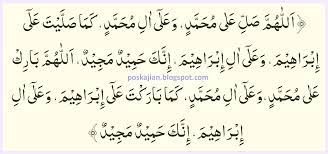 ﴿ اَللّٰهُمَّ صَلِّ عَلٰى مُحَمَّدٍ، وَعَلٰٓى اٰلِ مُحَمَّدٍ، كَمَا صَلَّيْتَ عَلٰٓى
إِبْرَاهِيْمَ، وَعَلٰٓى اٰلِ إِبْرَاهِيْمَ، إِنَّكَ حَمِيْدٌ مَجِيْدٌ، اَللّٰهُمَّ بَارِكْ
poskajian.blogspot.com
عَلٰى مُحَمَّدٍ، وَعَلٰٓى اٰلِ مُحَمَّدٍ، كَمَا بَارَكْتَ عَلٰٓى إِبْرَاهِيْمَ، وَعَلٰٓى اٰلِ
إِبْرَاهِيْمَ، إِنَّكَ حَمِيْدٌ مَجِيْدٌ ﴾